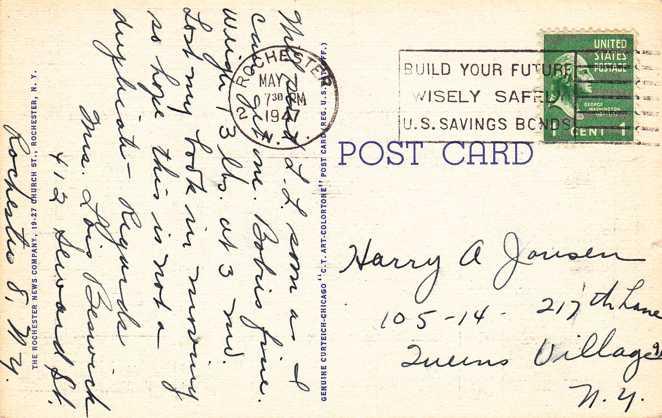 soon as I
can get one. Bobs is fine.
weighs 13 lbs. at 3 mo.
Lost my book in moving
so hope this is not a
duplicate - Regards
Mrs. Lois Beswick
412 Seward St.
Rochester 8, N.Y.
THE ROCHESTER NEWS COMPANY, 19-27 CHURCH ST., ROCHESTER, N. Y.
GENUINE CURTEICH-CHICAGO "C.T. ART-COLORTONE" POST CARD (REG. U.S. PAT. OFF.)
ROCHESTER
MAY
7 30 PM
1947
2 N.Y.
BUILD YOUR FUTURE
WISELY SAFELY
U.S. SAVINGS BONDS
UNITED
STATES
POSTAGE
GEORGE WASHINGTON
1 CENT 1
POST CARD
Harry A Jansen
105-14- 217th Lane
Queens Village
N.Y.